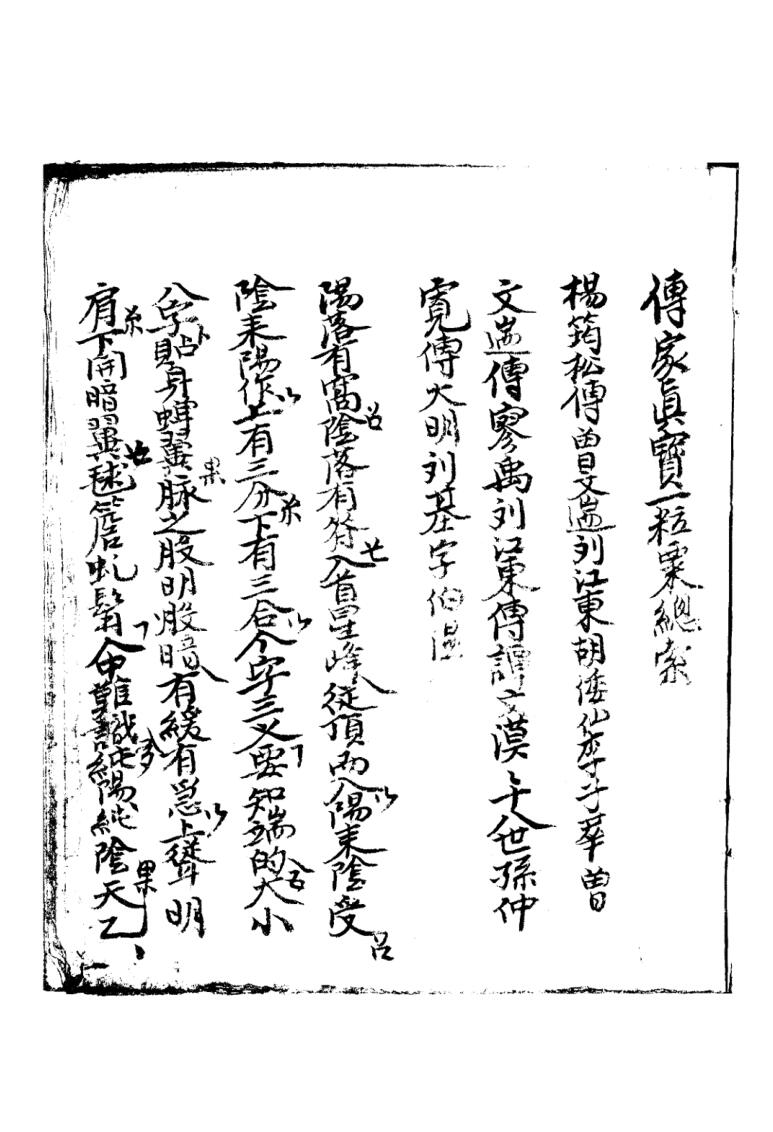 傳家眞寶一粒粟總索
楊筠松傳曽文遄刘江東胡倭仙李子華曽
文遄傳廖禹刘江東傳譚文漠〻于八世孫仲
寛傳大明刘基字伯温
陽落有窩陰落有脊入首星峰從頂兩八陽来陰受
陰来陽作上有三分下有三合个字三义要知端的大小
八字貼身蟬翼脉之股明股暗有緩有急上聳明
肩下開暗翼毬簷虬鬚个中難識純陽純陰天乙